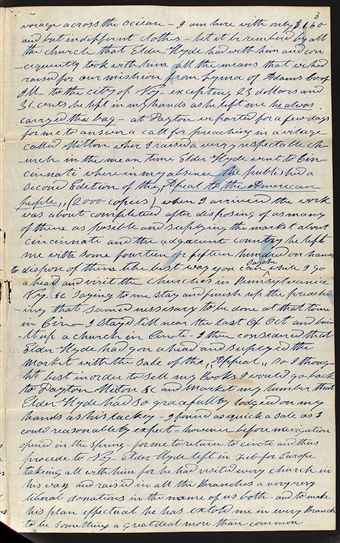 3
vorage across the Ocean - I am here with only $1.60
and but indifferent clothes - let it be rembered by all
the church that Elder Hyde had with him and con-
cequently took with him all the means that we had
raised for our mission from Lyma of Adams Co of
Ill to the city of NY - excepting 23 dollars and
31 cents he left in my hands as he left me he always
carried the bag - at Dayton we parted for a few days
for me to answer a call for preaching in a vilage
called Milton wher I raised a very respectable ch-
urch in the mean time Elder Hyde went to Cin-
cinnati where in my absence he published a
second Edition of the, "Apeal to the American
people", (2000 copies) when I arrived the work
was about completed after disposing of as many
of them as posible and suplying the market about
Cincinnate and the adgacent country he left
me with some fourteen or fifteen hundred on hands
to dispose of them the best way you can, while I go
a head and visit the Churches in Pennsylvania
Ny. &c saying to me stay and finish up the preach-
ing that semed nessesary to be done at that time
in Cin - I stayd till near the last of Oct and buil-
t up a church in Cinnte. I then consederd that
Elder Hyde had gon a head and supleyed the
Market with the sale of the, "Appeal", So I thoug-
ht best in order to sell my books I would go back
to Dayton Milton &c and Market my number that
Elder Hyde had so gracefully lodged on my
hands as his lackey - I found as quick a sale as I
could reasonably expect - however before navigation
opened in the Spring - for me to return to cincte and thus
procede to NY - Elder Hyde left in Feb for Europe
takeing all with him for he had visited every church in
his way and raised in all the Branches a very very
liberal donations in the name of us both - and to make
his plan effectual he has extold me in every Branch
to be something a great deal more than common